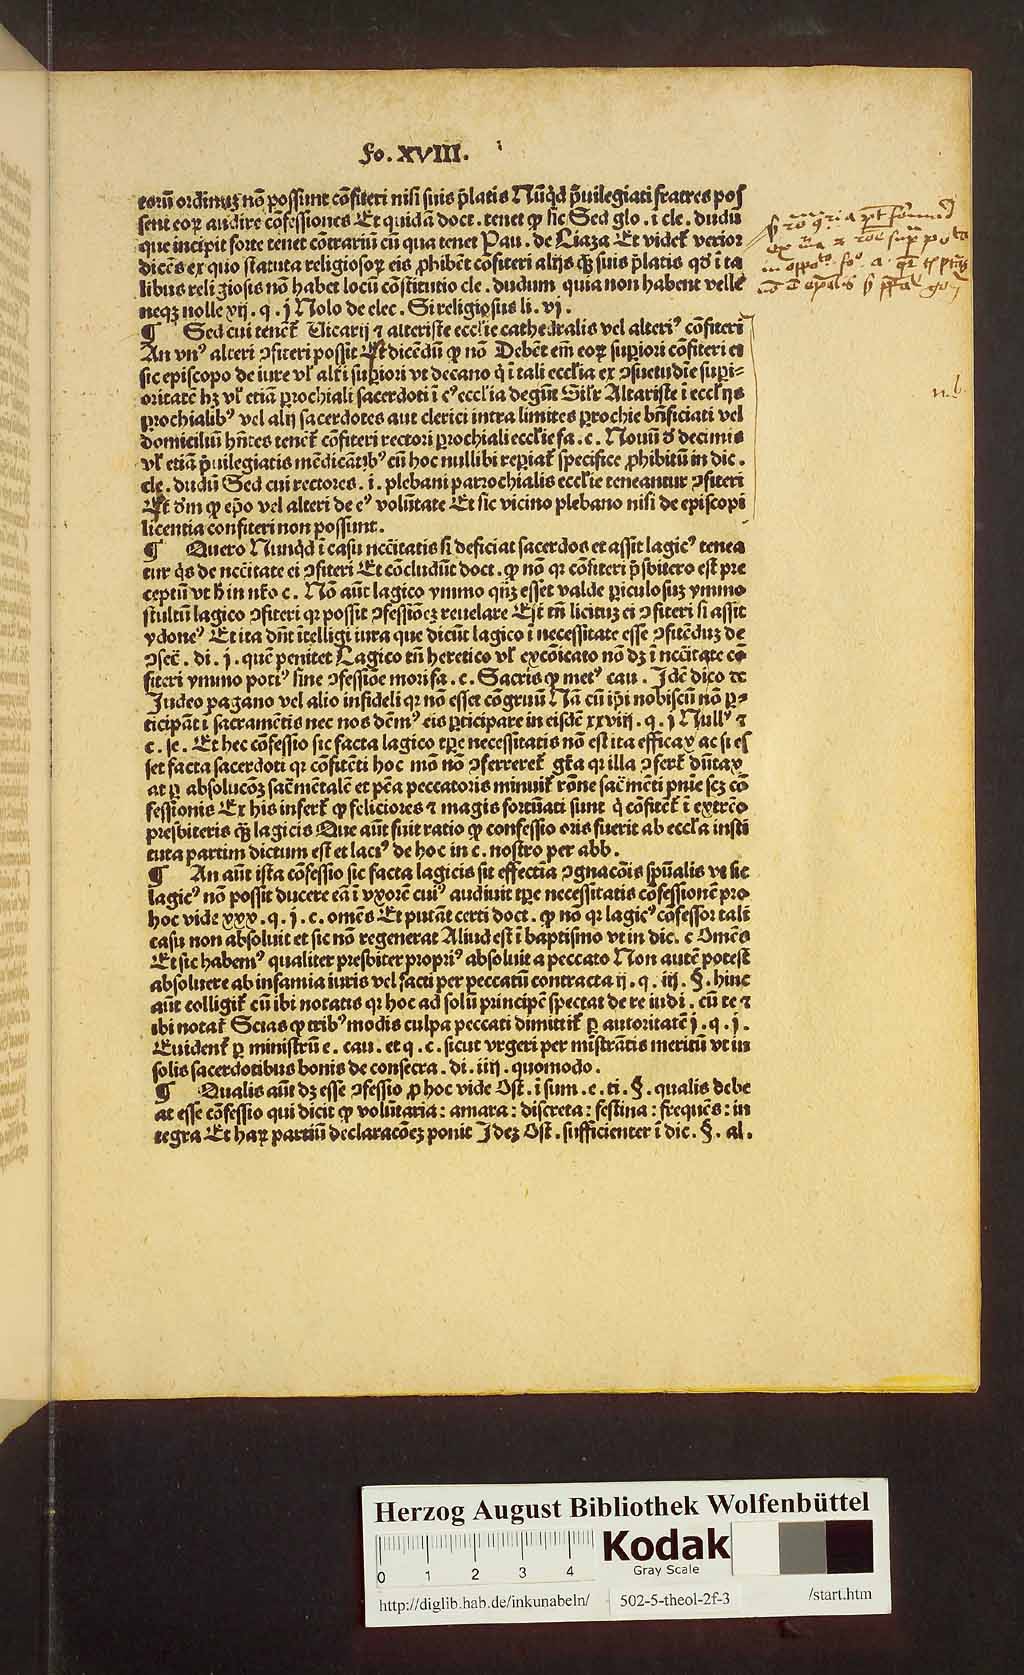 fo. XVIII.
eorū ordinuꝫ nō possunt cōfiteri nisi suis p̄latis Nūqd̄ p̄uilegiati fratres pos
sent eoꝝ audire cōfessiones Et quidā doct. tenet ꝙ sic Sed glo. ī cle. dudū
que incipit forte tenet cōtrariū cū qua tenet Pau. de Liaza Et videt᷑ verior
dicēs ex quo statuta religiosoꝝ eis ꝓhibēt cōfiteri alijs qꝫ̄ suis p̄latis qd̓ ī ta
libus religiosis nō habet locū cōstitutio cle. dudum quia non habent velle
neqꝫ nolle xij. q. j Nolo de elec. Si religiosus li. vj.
¶ Sed cui tenēt᷑ Vicarij ⁊ alteriste eccl̓ie cathedralis vel alteriꝰ cōfiteri
An vnꝰ alteri ↄfiteri possit Et dicēdū ꝙ nō Debēt em̄ eoꝝ suꝑiori cōfiteri et
sic episcopo de iure vl̓ alt̓i suꝑiori vt decano q̇ ī tali eccl̓ia ex ↄsuetudīe suꝑi⸗
oritatē hꝫ vl̓ etiā ꝑrochiali sacerdoti ī cꝰ eccl̓ia degūt Silr̓ Altariste ī eccl̓ijs
ꝑrochialibꝰ vel alij sacerdotes aut clerici intra limites ꝑrochie bn̄ficiati vel
domiciliū hn̄tes tenēt᷑ cōfiteri rectori ꝑrochiali eccl̓ie fa. c. Nouū d̓ decimis
vl̓ etiā p̄uilegiatis mēdicātibꝰ cū hoc nullibi reꝑiat᷑ specifice ꝓhibitū in dic.
cle. dudū Sed cui rectores. i. plebani parrochialis eccl̓ie teneantur ↄfiteri
Et d̓m ꝙ ep̄o vel alteri de eꝰ volūtate Et sic vicino plebano nisi de episcopi
licentia confiteri non possunt.
¶ Quero Nunqd̄ ī casu nccītatis si deficiat sacerdos et assit lagicꝰ tenea
tur q̇s de nccītate ei ↄfiteri Et cōcludūt doct. ꝙ nō qꝛ cōfiteri p̄sbitero est pre
ceptū vt h̄ in nr̄o c. Nō aūt lagico ymmo qn̄qꝫ esset valde ꝑiculosuꝫ ymmo
stultū lagico ↄfiteri qꝛ possit ↄfessiōeꝫ reuelare Est tn̄ licituꝫ ei ↄfiteri si assit
ydoneꝰ Et ita dn̄t ītelligi iura que dicūt lagico ī necessitate esse ↄfitēduꝫ de
ↄsec̄. di. j. quē penitet Lagico tn̄ heretico vl̓ excōicato nō dꝫ ī nccītate cō
fiteri ymmo potiꝰ sine ↄfessiōe mori fa. c. Sacris ꝙ metꝰ cau. Idē dico de
Iudeo pagano vel alio infideli qꝛ nō esset cōgruū Nā cū ip̄i nobiscū nō ꝑ⸗
ticipāt ī sacramētis nec nos dēmꝰ eis ꝑticipare in eisdē xxviij. q. j Nullꝰ ⁊
c. se. Et hec cōfessio sic facta lagico tꝑe necessitatis nō est ita efficax ac si es
set facta sacerdoti qꝛ cōfitēti hoc mō nō ↄferreret᷑ gr̄a qꝛ illa ↄfert᷑ dūtax
at ꝑ absolucōꝫ sac̄mētalē et pēa peccatoris minuit᷑ rōne sac̄mēti pn̄ie scꝫ cō
fessionis Ex his infert᷑ ꝙ feliciores ⁊ magis fortūati sunt q̇ cōfitēt᷑ ī extrēo
presbiteris qꝫ̄ lagicis Que aūt fuit ratio ꝙ confessio oris fuerit ab eccl̓ia insti
tuta partim dictum est et laciꝰ de hoc in c. nostro per abb.
¶ An aūt ista cōfessio sic facta lagicis sit effectia ↄgnacōis spūalis vt sic
lagicꝰ nō possit ducere eā ī vxorē cuiꝰ audiuit tꝑe necessitatis cōfessionē pro
hoc vide xxx. q. j. c. omēs Et putāt certi doct. ꝙ nō qꝛ lagicꝰ cōfessor tali
casu non absoluit et sic nō regenerat Aliud est ī baptismo vt in dic. c Omēs
Et sic habemꝰ qualiter presbiter propriꝰ absoluit a peccato Non autē potest
absoluere ab infamia iuris vel facti per peccatū contracta ij. q. iij. §. hinc
aūt colligit᷑ cū ibi notatis qꝛ hoc ad solū principē spectat de re iudi. cū te ⁊
ibi notat᷑ Scias ꝙ tribꝰ modis culpa peccati dimittit᷑ ꝑ autoritatē j. q. j.
Euident᷑ ꝑ ministrū e. cau. et q. c. sicut vrgeri per mīstrātis meritū vt in
solis sacerdotibus bonis de consecra. di. iiij. quomodo.
¶ Qualis aūt dꝫ esse ↄfessio ꝓ hoc vide Ost. ī sum. e. ti. §. qualis debe
at esse cōfessio qui dicit ꝙ volūtaria: amara: discreta: festina: frequēs: in
tegra Et haꝝ partiū declaracōeꝫ ponit Ideꝫ Ost. sufficienter ī dic. §. al.
n.b.
Herzog August Bibliothek Wolfenbüttel
Kodak
Gray Scale
0 1 2 3 4
http://diglib.hab.de/inkunabeln/ 502-5-theol-2f-3 /start.htm